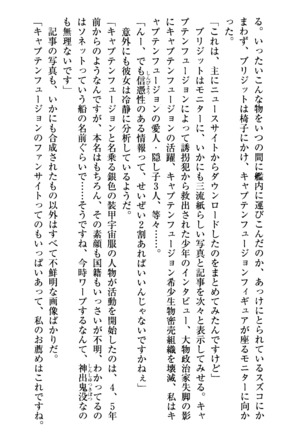 る。いったいこんな物をいつの間に艦内に運びこんだのか、あっけにとられるスズコにか
まわず、ブリジットは椅子にかけ、キャプテンフュージョンフィギュアが座るモニターに向か
った。
「これは、主にニュースサイトからダウンロードしたのをまとめてみたんですけど」
ブリジットはモニターに、いかにも三流紙らしい写真と記事を次々と表示してみせる。キャ
プテンフュージョンの活躍によって誘拐犯から救出された少年のインタビュー、大物政治家失脚
にキャプテンフュージョンの活躍、キャプテンフュージョン希少生物密売組織を壊滅、私はキ
ャプテンフュージョンの愛人、隠し子３人、等々……。
「んー、でも信憑性のある情報って、せいぜい２割あればいいんじゃないですかねぇ」
しんぴょうせい
意外にも彼女は冷静に分析しているようだ。
「キャプテンフュージョンと名乗る銀色の装甲宇宙服の人物が活動を開始したのは、４、５年
前からのようなんですが、本名はもちろん、その素顔も国籍もいっさいが不明。わかってるの
はソネットっていう船の名前ぐらいで……そうですね、今時ワープするなんて、神出鬼没なの
しんしゅつきぼつ
も無理ないです」
記事の写真も、いかにも合成されたもの以外はすべて不鮮明な画像ばかりだ。
「キャプテンフュージョンのファンサイトってのもいっぱいあって、私のお薦めはこれですね。